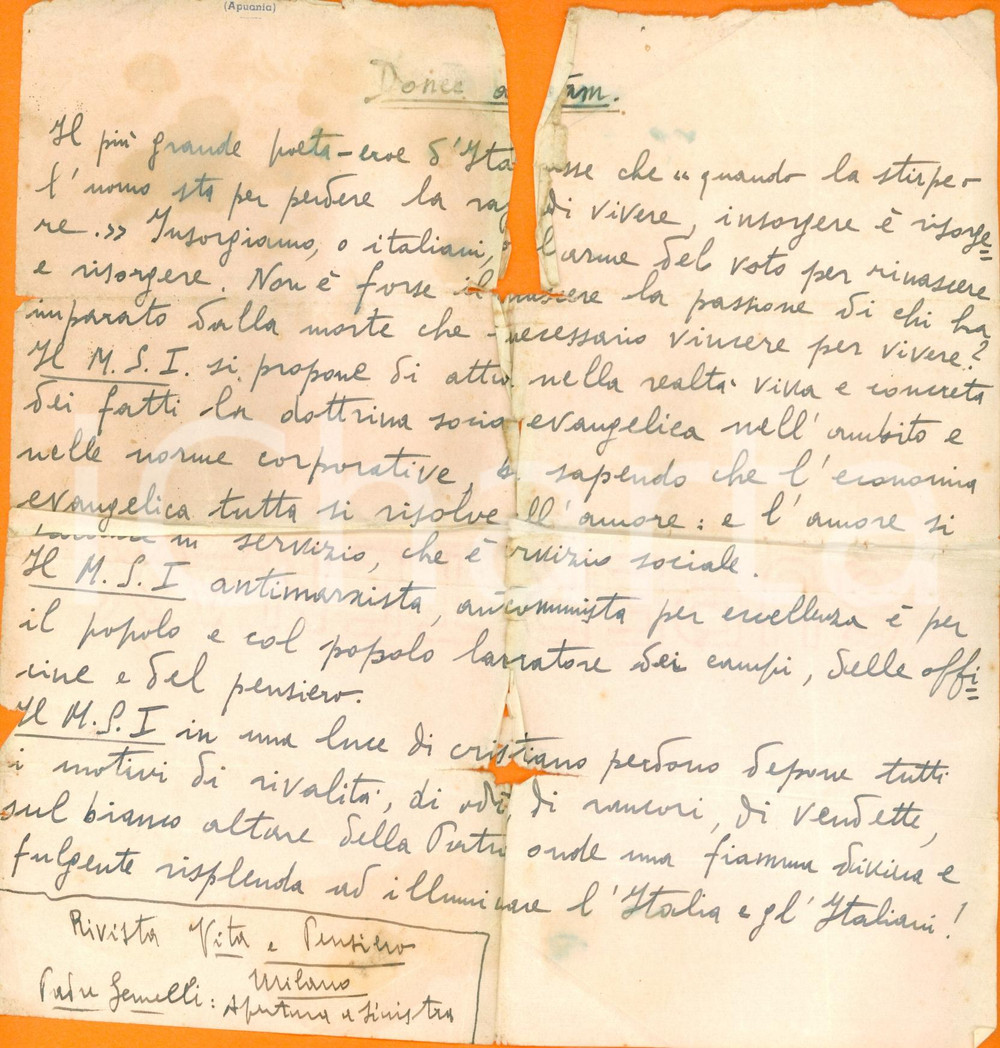 (Apuania)
Donec a am.
Il più grande poeta-eroe d'Ita sse che "quando la stirpe o
l'uomo sta per perdere la rag di vivere, insorgere è risorge=
re.» Insorgiamo, o italiani, l'arme del voto per rinascere
e risorgere. Non è forse il nascere la passione di chi ha
imparato dalla morte che necessario vincere per vivere?
Il M.S.I. si propone di attu nella realtà viva e concreta
dei fatti la dottrina socio evangelica nell'ambito e
nelle norme corporative, sapendo che l'economia
evangelica tutta si risolve ll'amore: e l'amore si
in servizio, che è rvizio sociale.
Il M.S.I antimarxista, anticomunista per eccellenza è per
il popolo e col popolo lavoratore dei campi, delle offi=
cine e del pensiero.
Il M.S.I in una luce di cristiano perdono depone tutti
i motivi di rivalità, di odi, di rancori, di vendette,
sul bianco altare della Patri onde una fiamma divina e
fulgente risplenda ad illuminare l'Italia e gl'Italiani!
Rivista Vita e Pensiero
Milano
Padre Gemelli: Apertura a sinistra
iCharta